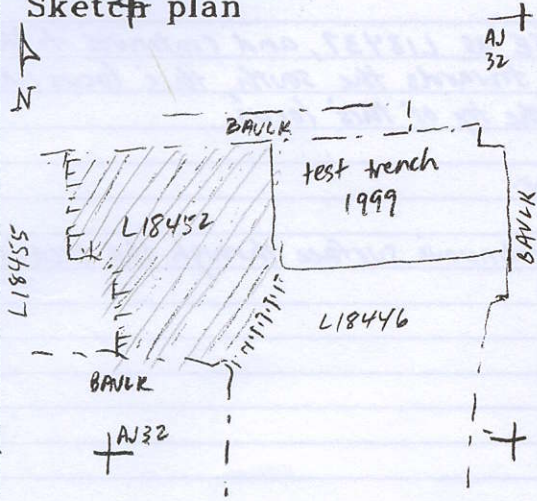 Sketch plan
AJ
32
N
BAULK
test trench
1999
L18452
BAULK
L18455
L18446
BAULK
AJ32